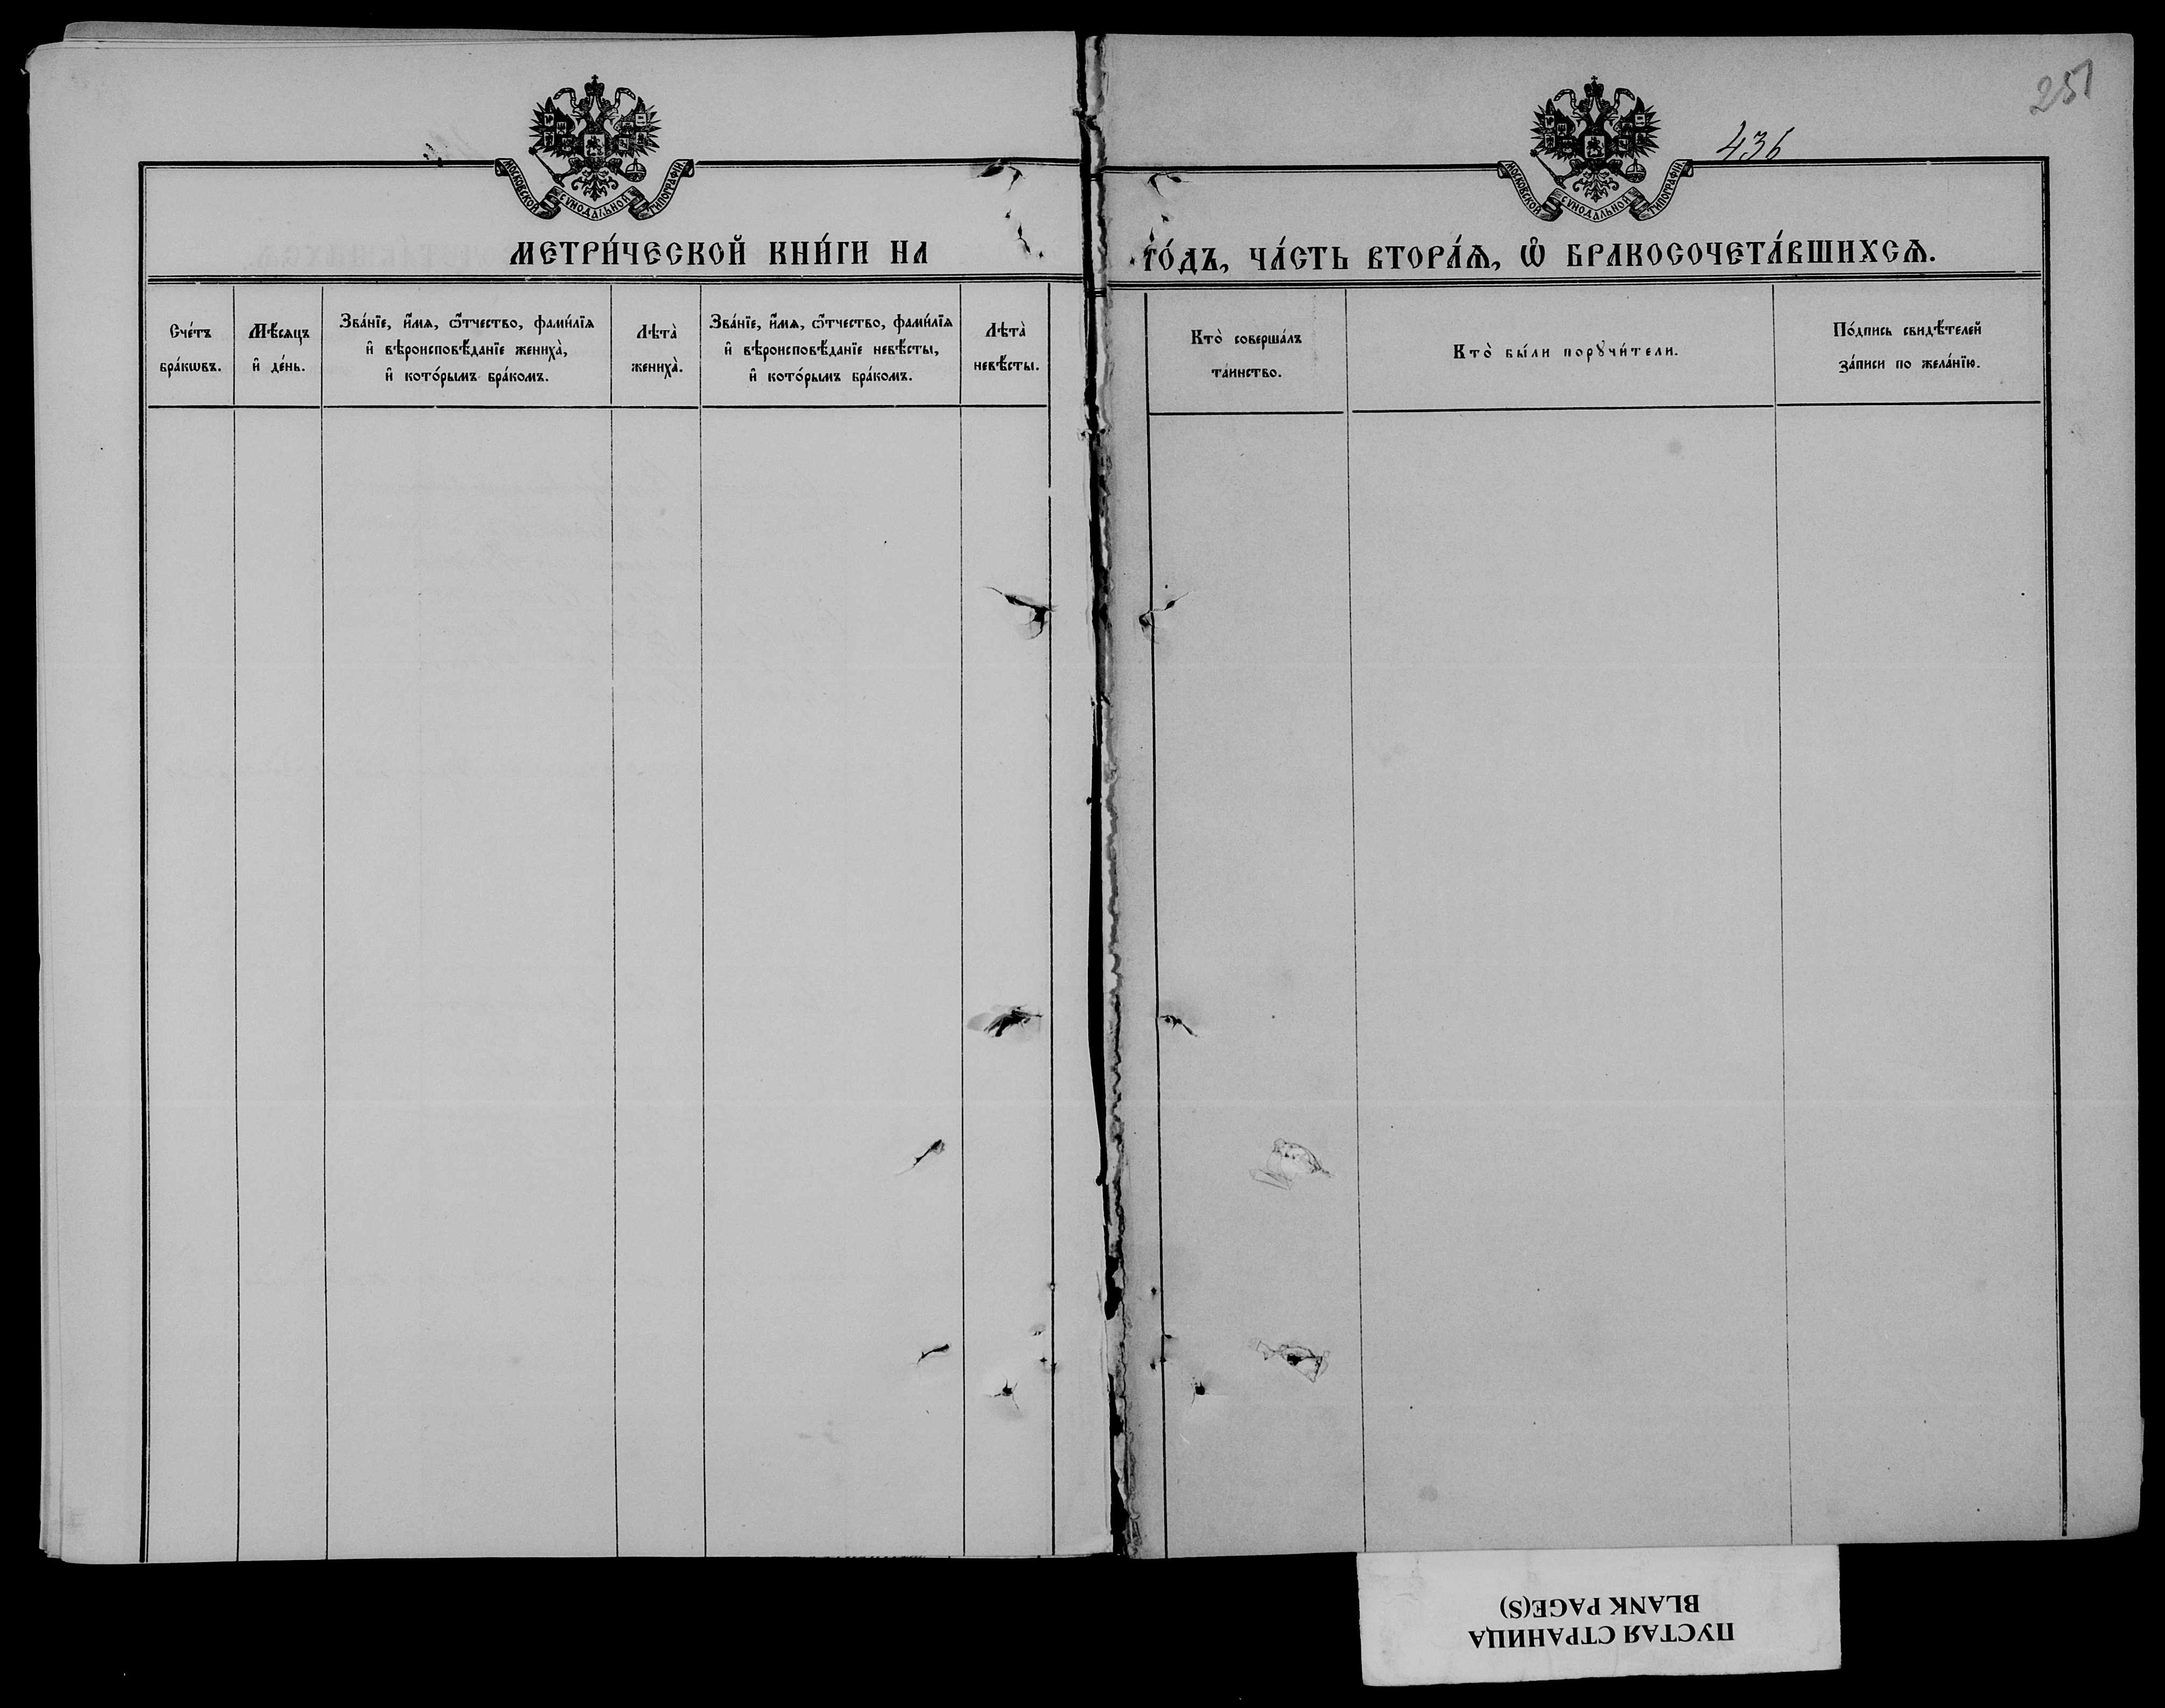 251
436
МОСКОВСКОЙ СѴНОДАЛЬНОЙ ТИПОГРАФІИ.
МОСКОВСКОЙ СѴНОДАЛЬНОЙ ТИПОГРАФІИ.
МЕТРИ́ЧЕСКОЙ КНИ́ГИ НА
ГО́ДЪ, ЧА́СТЬ ВТОРА́Ѧ, Ѡ҆ БРАКОСОЧЕТА́ВШИХСѦ.
Сче́тъ
бра́кѡвъ.
Мѣ́сяцъ
и҆ де́нь.
Зва́нїе, и҆́мѧ, ѻ҆́тчество, фами́лїѧ
и҆ вѣроисповѣ́данїе жениха̀,
и҆ кото́рымъ бра́комъ.
Лѣта̀
жениха̀.
Зва́нїе, и҆́мѧ, ѻ҆́тчество, фами́лїѧ
и҆ вѣроисповѣ́данїе невѣ́сты,
и҆ кото́рымъ бра́комъ.
Лѣта̀
невѣ́сты.
Кто̀ соверша́лъ
та́инство.
Кто̀ бы́ли порꙋчи́тели.
По́дпись свидѣ́телей
за́писи по жела́нїю.
ПУСТАЯ СТРАНИЦА
BLANK PAGE(S)